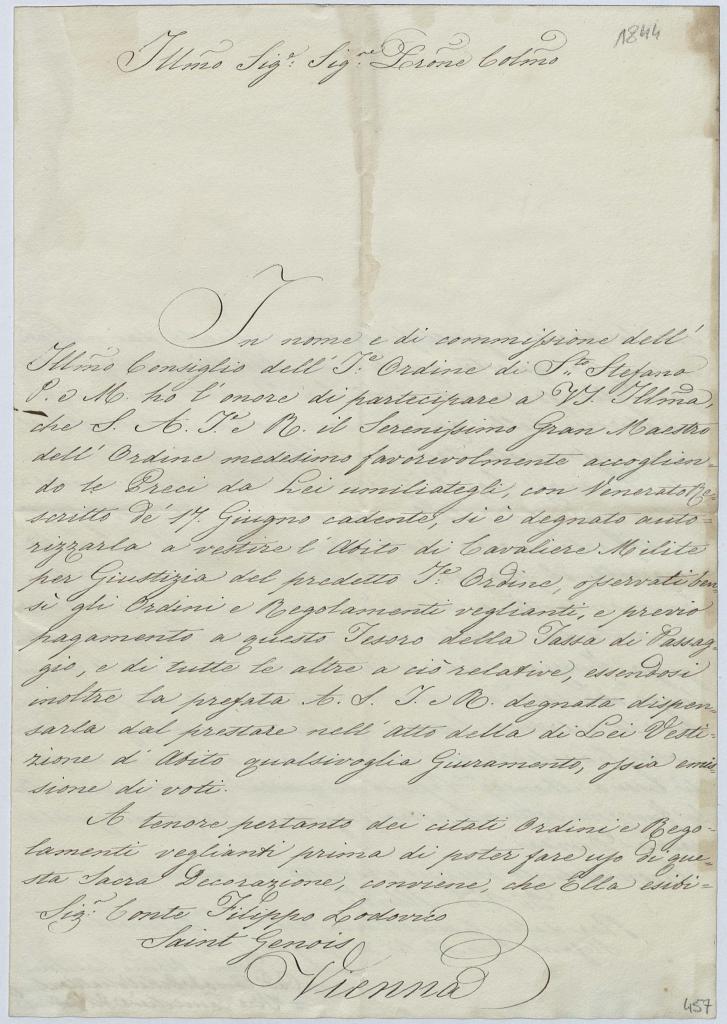 1844
Illmo Sigr. Sigre. Prone Colmo
In nome e di commissione dell'
Illmo Consiglio dell' I.e Ordine di S.to Stefano
P. e M. ho l'onore di partecipare a VS. Illma,
che S. A. I. e R. il Serenissimo Gran Maestro
dell' Ordine medesimo favorevolmente accoglien=
do le Preci da Lei umiliategli, con Venerato Re=
scritto de' 17. Giugno cadente, si è degnato auto=
rizzarla a vestire l'Abito di Cavaliere Milite
per Giustizia del predetto I.e Ordine, osservati ben=
sì gli Ordini e Regolamenti veglianti, e previo
pagamento a questo Tesoro della Tassa di Passag=
gio, e di tutte le altre a ciò relative, essendosi
inoltre la prefata A. S. I. e R. degnata dispen=
sarla dal prestare nell' atto della di Lei Vesti=
zione d' Abito qualsivoglia Giuramento, ossia emis=
sione di voti.
A tenore pertanto dei citati Ordini e Rego=
lamenti veglianti prima di poter fare uso di que=
sta Sacra Decorazione, conviene, che Ella esibi=
Sigr. Conte Filippo Lodovico
Saint Genois
Vienna
457